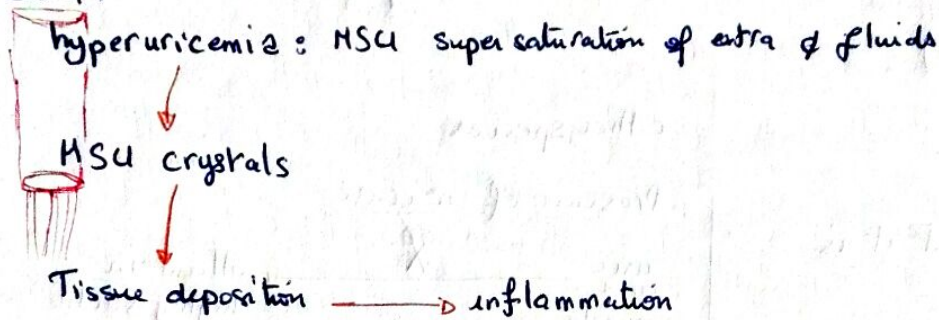 hyperuricemia : MSU super saturation of extra ¢ fluids
MSU crystals
Tissue deposition → inflammation